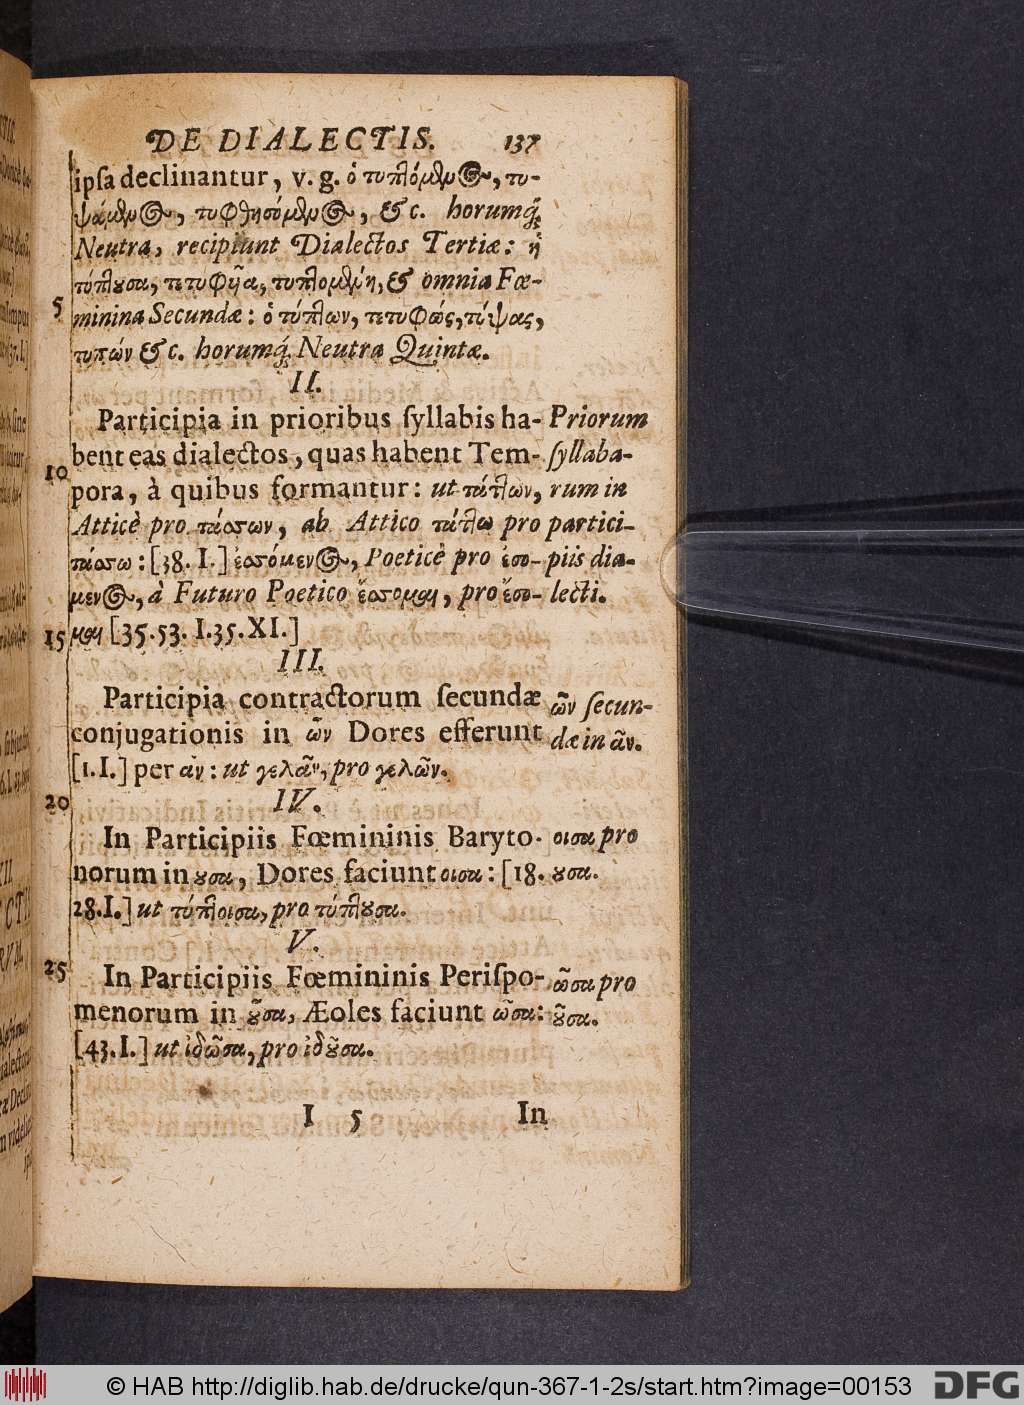 DE DIALECTIS. 137
ipſa declinantur, v. g. ὁ τυπλόμενος, τυ-
ψάμενος, τυφθησόμενος, & c. horumq́;
Neutra, recipiunt Dialectos Tertiæ: ἡ
τύπτουσα, τετυφῆα, τυπτομένη, & omnia Fœ-
5
minina Secundæ: ὁ τύπτων, τετυφώς, τύψας,
τυπών & c. horumq́; Neutra Quintæ.
II.
Participia in prioribus ſyllabis ha-
bent eas dialectos, quas habent Tem-
10
pora, à quibus formantur: ut πάτλων,
Atticè pro πάσσων, ab Attico πάτλω pro
πάσσω: [38. I.] ἐσσόμενος, Poeticè pro ἐσο-
μενος, à Futuro Poetico ἔσσομαι, pro ἔσο-
15
μαι [35.53. I.35.XI.]
Priorum
ſyllaba-
rum in
partici-
piis dia-
lecti.
III.
Participia contractorum ſecundæ
conjugationis in ῶν Dores efferunt
[1.I.] per ᾶν: ut γελᾶν, pro γελῶν.
ῶν ſecun-
dæ in ᾶν.
20
IV.
In Participiis Fœmininis Baryto-
norum in ουσα, Dores faciunt οισα: [18.
28.I.] ut τύπτοισα, pro τύπτουσα.
οισα pro
ουσα.
V.
25
In Participiis Fœmininis Periſpo-
menorum in οῦσα, Æoles faciunt ῶσα:
[43.I.] ut ἰδῶσα, pro ἰδοῦσα.
ῶσα pro
οῦσα.
I 5 In
© HAB http://diglib.hab.de/drucke/qun-367-1-2s/start.htm?image=00153
DFG